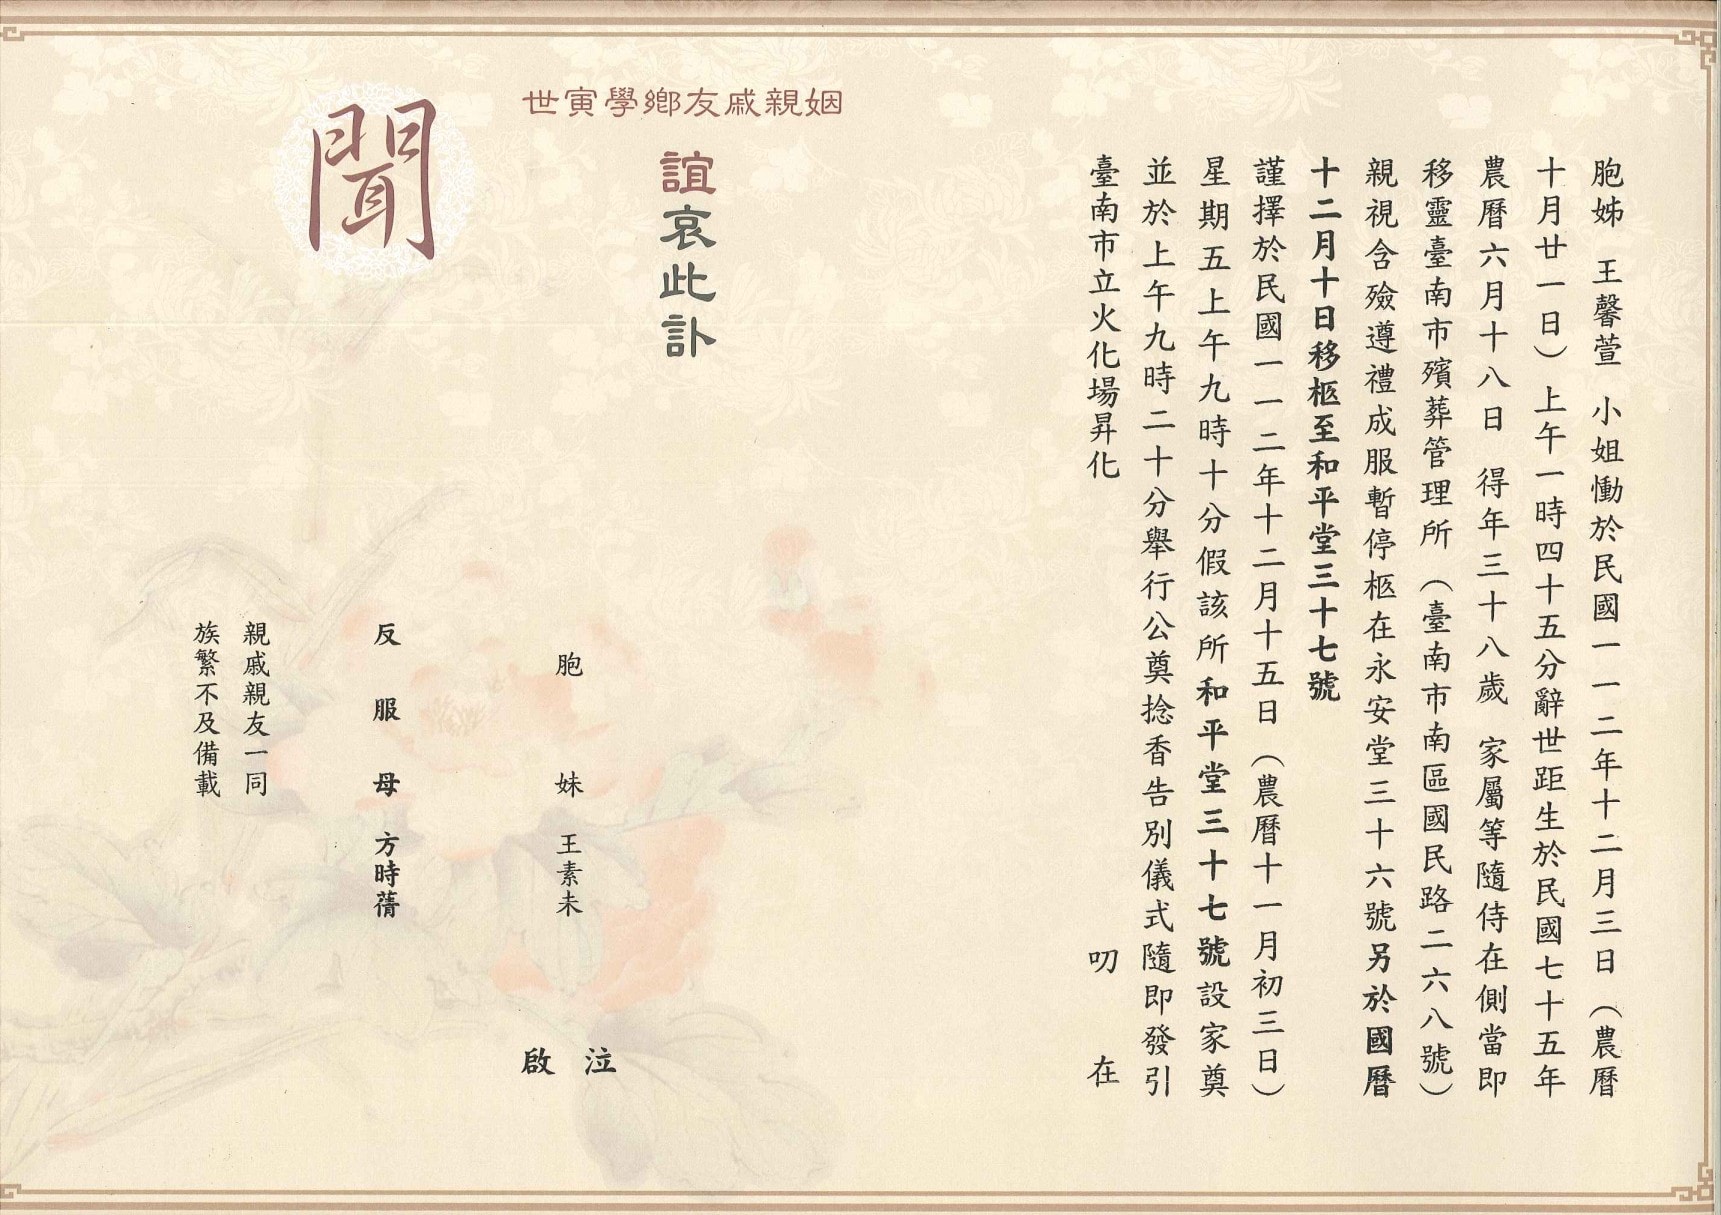 胞姊　王馨萱　小姐慟於民國一一二年十二月三日（農曆
十月廿一日）上午一時四十五分辭世距生於民國七十五年
農曆六月十八日　得年三十八歲　家屬等隨侍在側當即
移靈臺南市殯葬管理所（臺南市南區國民路二六八號）
親視含殮遵禮成服暫停柩在永安堂三十六號另於國曆
十二月十日移柩至和平堂三十七號
謹擇於民國一一二年十二月十五日（農曆十一月初三日）
星期五上午九時十分假該所和平堂三十七號設家奠
並於上午九時二十分舉行公奠捻香告別儀式隨即發引
臺南市立火化場昇化　叨　在
姻親戚友鄉學寅世
誼哀此訃
聞
胞　妹　王素未
泣
啟
反服母　方時蒨
親戚親友一同
族繁不及備載